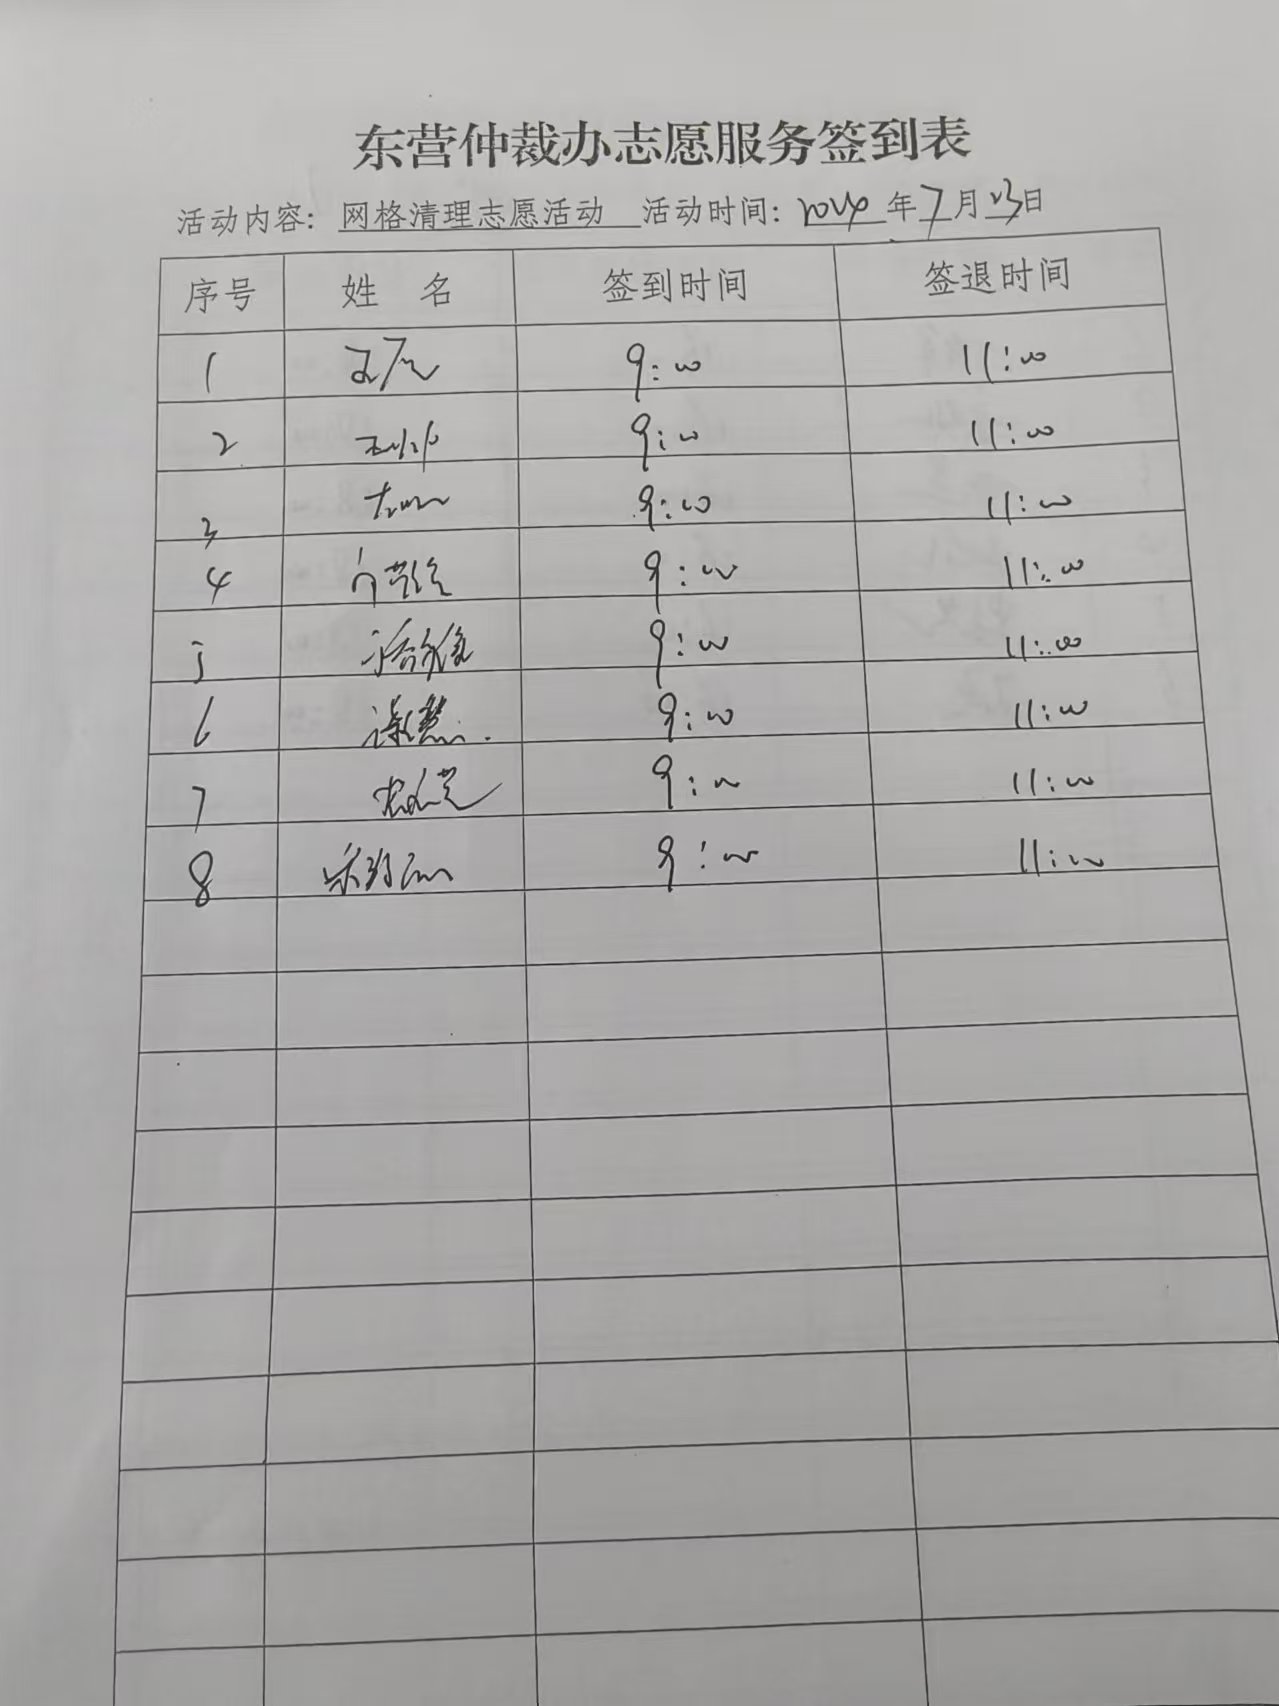 东营仲裁办志愿服务签到表
活动内容: 网格清理志愿活动 活动时间: 2024 年 7 月 23 日
序号 姓 名 签到时间 签退时间
1 9:00 11:00
2 9:00 11:00
3 9:00 11:00
4 9:00 11:00
5 9:00 11:00
6 9:00 11:00
7 9:00 11:00
8 9:00 11:00